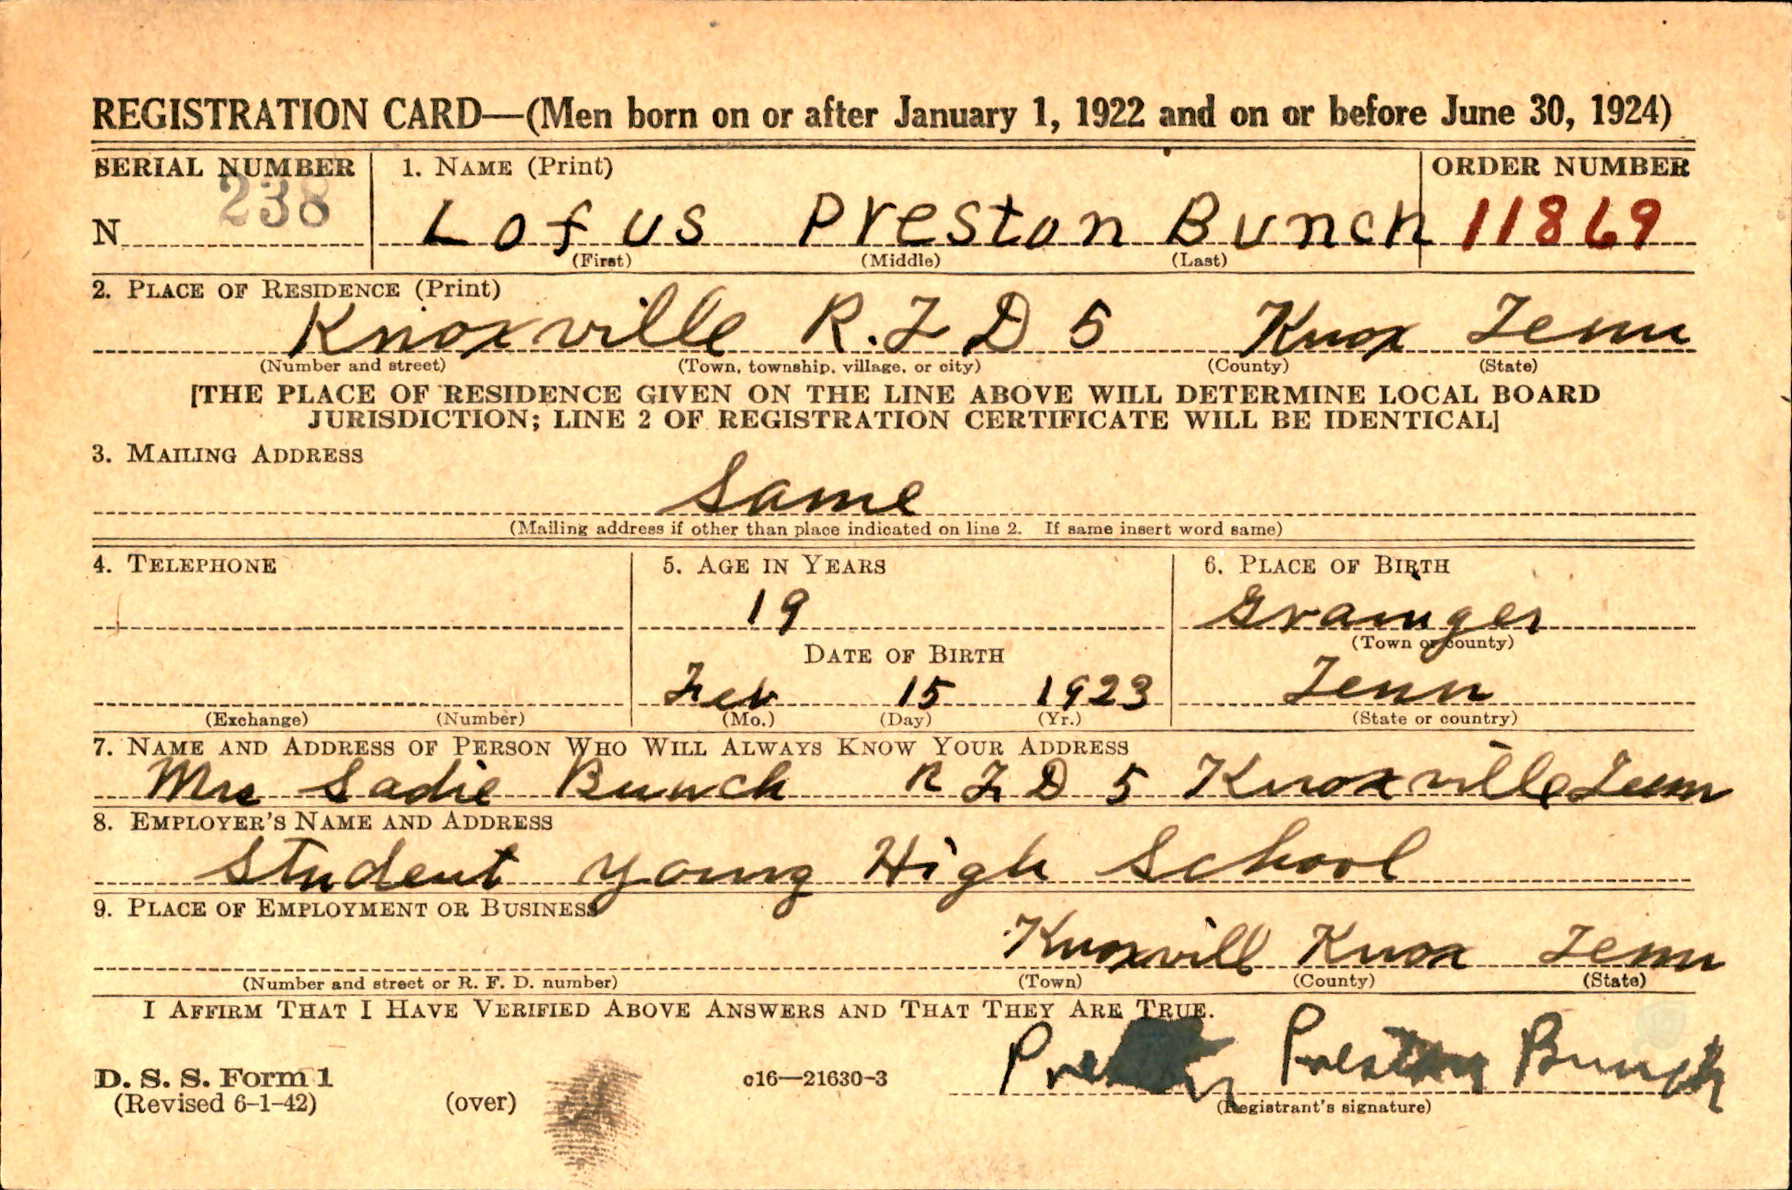 REGISTRATION CARD—(Men born on or after January 1, 1922 and on or before June 30, 1924)
SERIAL NUMBER
1. NAME (Print)
ORDER NUMBER
N 238
Lofus Preston Bunch
11869
(First) (Middle) (Last)
2. PLACE OF RESIDENCE (Print)
Knoxville R.F D 5 Knox Tenn
(Number and street) (Town, township, village, or city) (County) (State)
[THE PLACE OF RESIDENCE GIVEN ON THE LINE ABOVE WILL DETERMINE LOCAL BOARD
JURISDICTION; LINE 2 OF REGISTRATION CERTIFICATE WILL BE IDENTICAL]
3. MAILING ADDRESS
Same
(Mailing address if other than place indicated on line 2. If same insert word same)
4. TELEPHONE
5. AGE IN YEARS
6. PLACE OF BIRTH
19
Grainger
(Town or county)
DATE OF BIRTH
Feb 15 1923
Tenn
(Exchange) (Number)
(Mo.) (Day) (Yr.)
(State or country)
7. NAME AND ADDRESS OF PERSON WHO WILL ALWAYS KNOW YOUR ADDRESS
Mrs Sadie Bunch R F D 5 Knoxville Tenn
8. EMPLOYER'S NAME AND ADDRESS
Student Young High School
9. PLACE OF EMPLOYMENT OR BUSINESS
Knoxvill Knox Tenn
(Number and street or R. F. D. number) (Town) (County) (State)
I AFFIRM THAT I HAVE VERIFIED ABOVE ANSWERS AND THAT THEY ARE TRUE.
Preston Bunch
D. S. S. Form 1
(Revised 6-1-42)
(over)
c16—21630-3
(Registrant's signature)